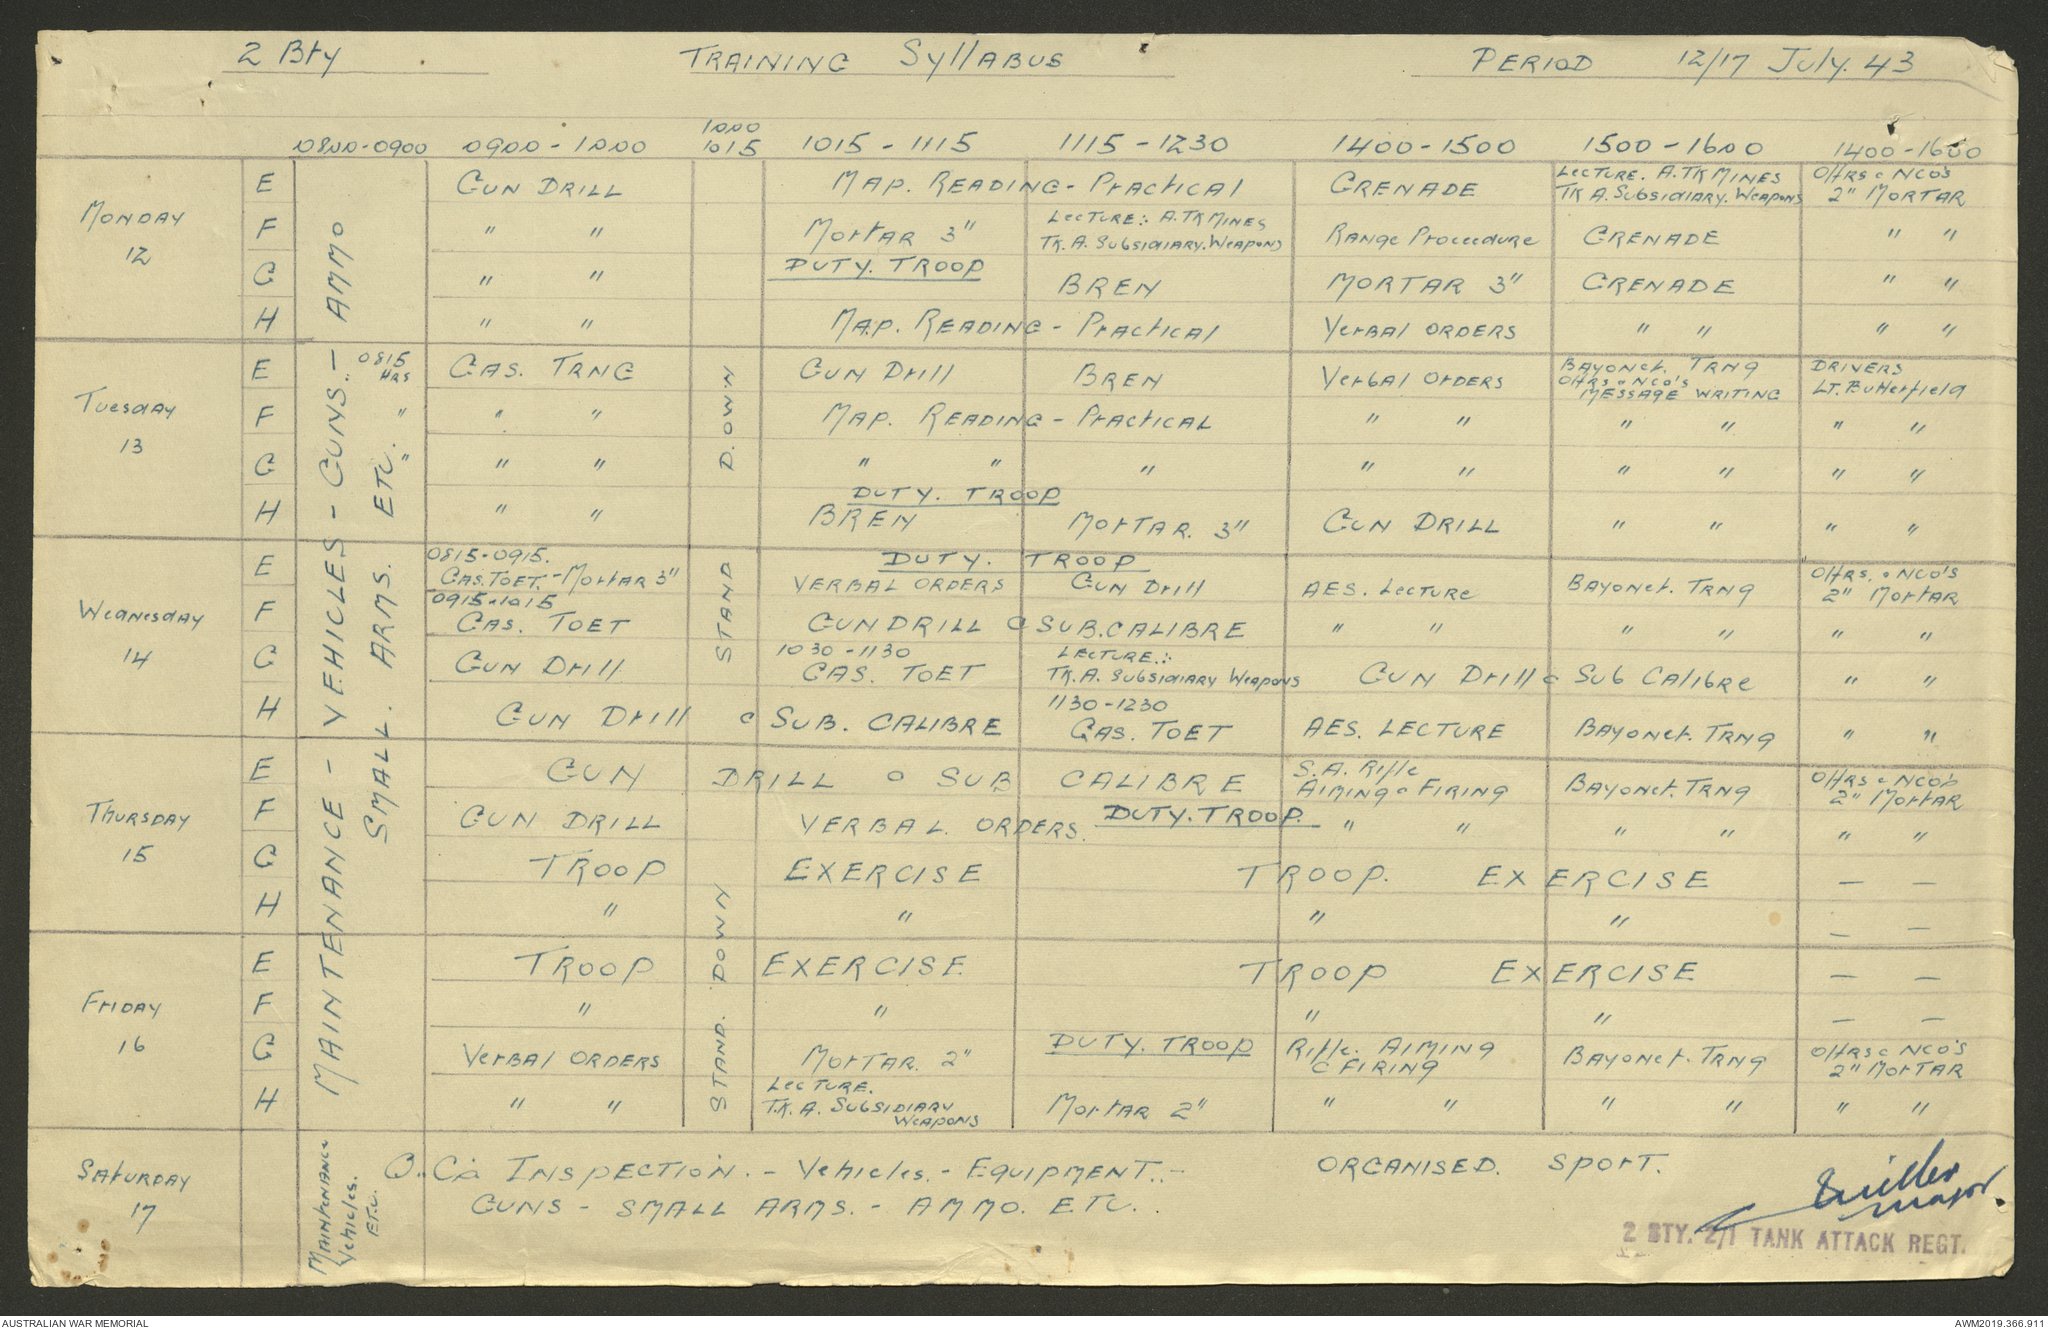 2 Bty TRAINING Syllabus PERIOD 12/17 July. 43
0800-0900 0900-1000 1000 1015 1015-1115 1115-1230 1400-1500 1500-1600 1400-1600
MONDAY 12
MAINTENANCE - VEHICLES - GUNS. - AMMO
SMALL. ARMS. ETC.
E GUN DRILL MAP. READING - Practical GRENADE Lecture. A.TK MINES TK A. Subsidiary. Weapons Offrs & NCO's 2" MORTAR
F " " Mortar 3" Lecture:. A.TK MINES TK. A. Subsidiary. Weapons Range Procedure GRENADE " "
G " " DUTY. TROOP BREN MORTAR 3" GRENADE " "
H " " MAP. READING - Practical Verbal ORDERS " " " "
Tuesday 13
STAND D.OWN
E 0815 HRS GAS. TRNG GUN Drill BREN Verbal Orders Bayonet. TRNG Offrs & NCO's MESSAGE WRITING DRIVERS LT. Butterfield
F " " " MAP. READING - Practical " " " " " "
G " " " " " " " " " " " "
H " " DUTY. TROOP BREN MORTAR. 3" GUN DRILL " " " "
Wednesday 14
E 0815-0915. GAS. TOET. - Mortar 3" DUTY. TROOP VERBAL ORDERS GUN Drill AES. Lecture Bayonet. TRNG Offrs. & NCO's 2" Mortar
F 0915-1015 GAS. TOET GUN DRILL & SUB. CALIBRE " " " " " "
G GUN Drill 1030-1130 GAS. TOET LECTURE.:. TK. A. Subsidiary Weapons GUN Drill & Sub Calibre " "
H GUN Drill & SUB. CALIBRE 1130-1230 GAS. TOET AES. LECTURE Bayonet. TRNG " "
THURSDAY 15
STAND. DOWN
E GUN DRILL & SUB CALIBRE S.A. Rifle AIMING & FIRING Bayonet. TRNG Offrs & NCO's 2" Mortar
F GUN DRILL VERBAL. ORDERS. DUTY. TROOP. " " " " " "
G TROOP EXERCISE TROOP. EXERCISE — —
H " " " " — —
FRIDAY 16
E TROOP EXERCISE TROOP EXERCISE — —
F " " " " — —
G Verbal ORDERS MORTAR. 2" DUTY. TROOP Rifle. AIMING & FIRING Bayonet. TRNG Offrs & NCO's 2" MORTAR
H " " LECTURE. T.K. A. SUBSIDIARY Weapons Mortar 2" " " " " " "
SATURDAY 17
MAINTENANCE Vehicles. ETC.
O.C's INSPECTION. - Vehicles. - EQUIPMENT. - ORGANISED. SPORT.
GUNS - SMALL ARMS. - AMMO. ETC.
Major.
2 BTY. 2/1 TANK ATTACK REGT.
AUSTRALIAN WAR MEMORIAL AWM2019.366.911